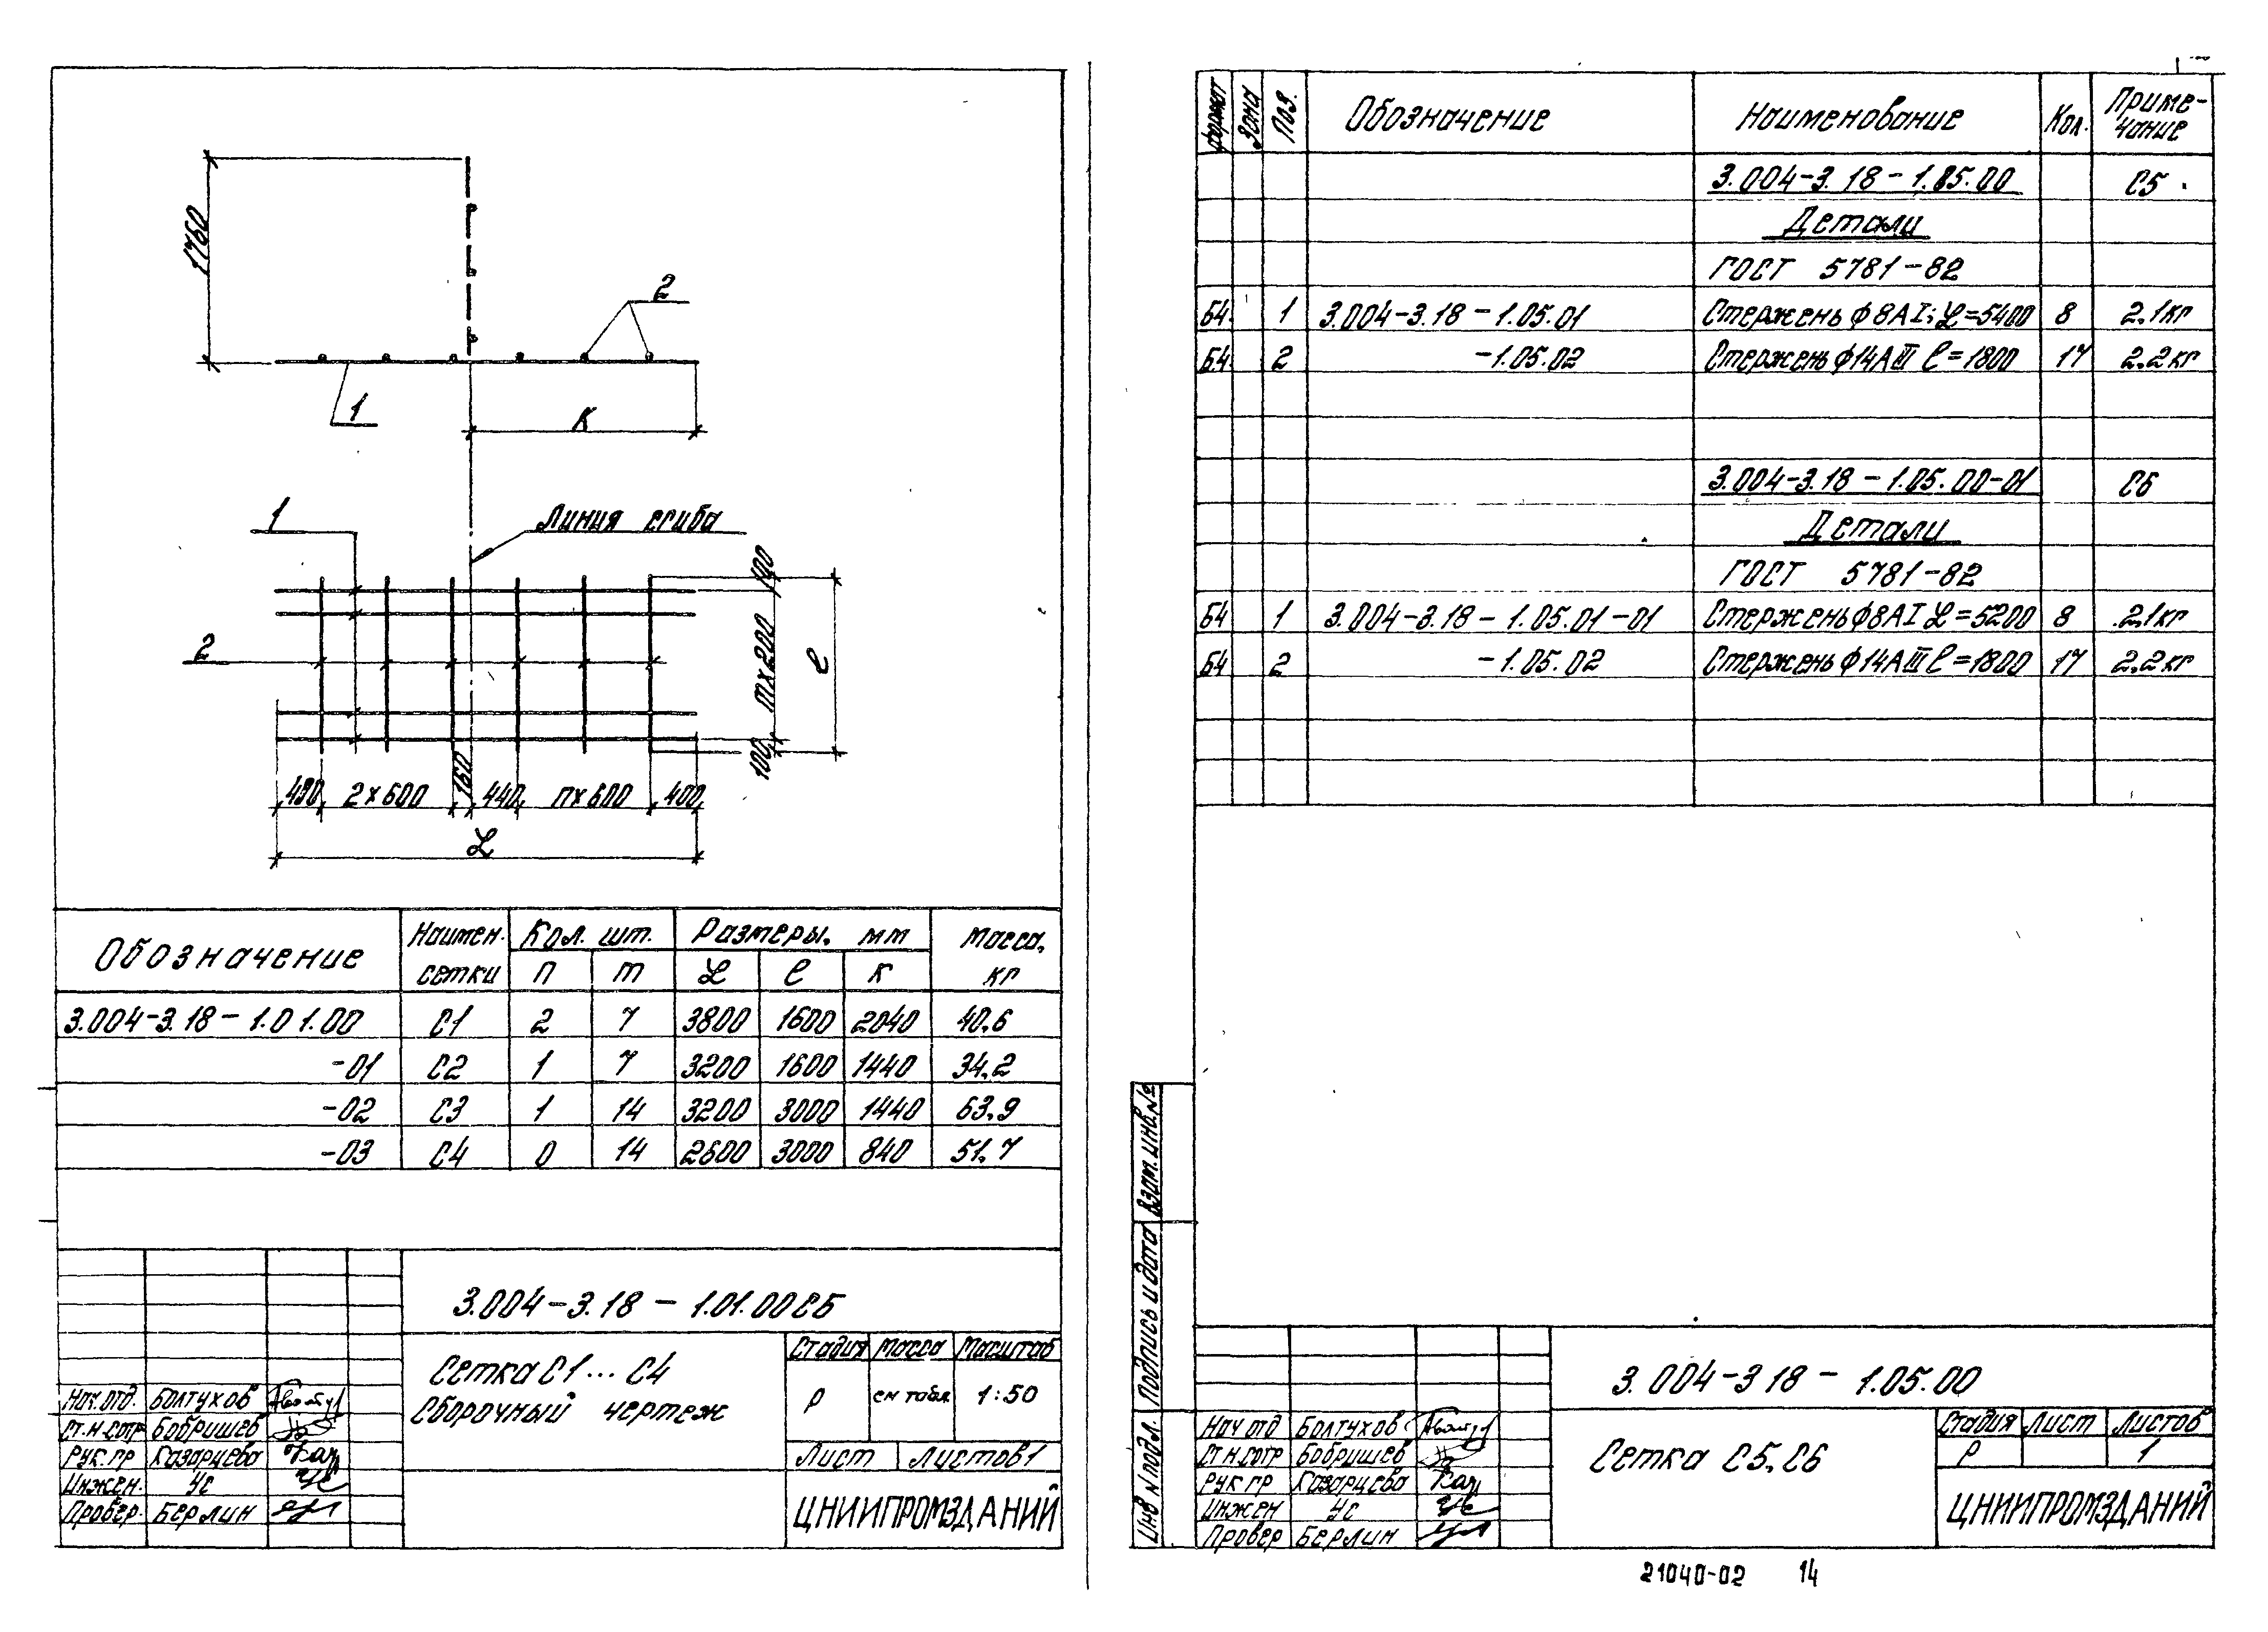 1760
2
1
К
1
Линия сгиба
2
100
m×200
ℓ
100
400 2×600 160 440 n×600 400
L
Обозначение Наимен. сетки Кол. шт. Размеры, мм Масса, кг
n m L ℓ К
3.004-3.18-1.01.00 С1 2 7 3800 1600 2040 40,6
-01 С2 1 7 3200 1600 1440 34,2
-02 С3 1 14 3200 3000 1440 63,9
-03 С4 0 14 2600 3000 840 51,7
3.004-3.18-1.01.00СБ
Сетка С1...С4
Сборочный чертеж
Стадия Масса Масштаб
Р см табл 1:50
Лист Листов 1
ЦНИИПРОМЗДАНИЙ
Нач.отд. Болтухов
Ст.н.сотр Бобришев
Рук.гр Казарцева
Инжен. Ус
Провер. Берлин
Формат Зона Поз. Обозначение Наименование Кол. Приме-чание
3.004-3.18-1.05.00 С5
Детали
ГОСТ 5781-82
Б4 1 3.004-3.18-1.05.01 Стержень ф8АI; L=5400 8 2,1кг
Б4 2 -1.05.02 Стержень ф14АIII ℓ=1800 17 2,2кг
3.004-3.18-1.05.00-01 С6
Детали
ГОСТ 5781-82
Б4 1 3.004-3.18-1.05.01-01 Стержень ф8АI L=5200 8 2,1кг
Б4 2 -1.05.02 Стержень ф14АIII ℓ=1800 17 2,2кг
Инв N подл. Подпись и дата Взам.инв.№
3.004-3 18-1.05.00
Сетка С5,С6
Стадия Лист Листов
Р 1
ЦНИИПРОМЗДАНИЙ
Нач отд Болтухов
Ст н.сотр Бобришев
Рук гр Казарцева
Инжен Ус
Провер Берлин
21040-02 14